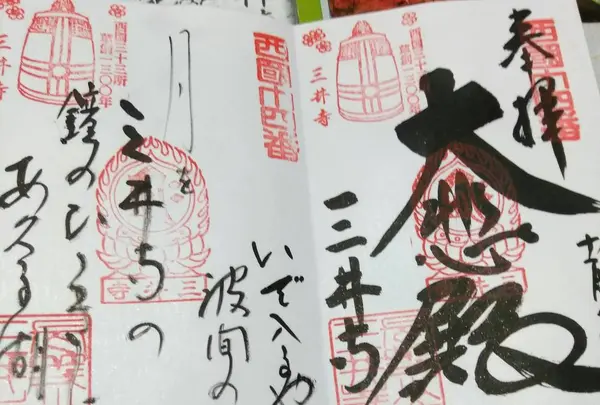 西国十四番
奉拝
大悲殿
三井寺
西国三十三所
草創一三〇〇年
三井寺
西国十四番
いで入るや
波間の
月を
三井寺の
鐘のひびきに
あくる湖
西国三十三所
草創一三〇〇年
三井寺
三井寺